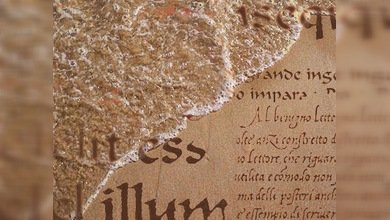 isequ
grande inge
o impara · D
Al benigno letto
olte anzi constretto d
o lettore, che riguard
utilita e cōmodo non
ma delli posteri anch
e essempio di scriuer
lit ess
illum